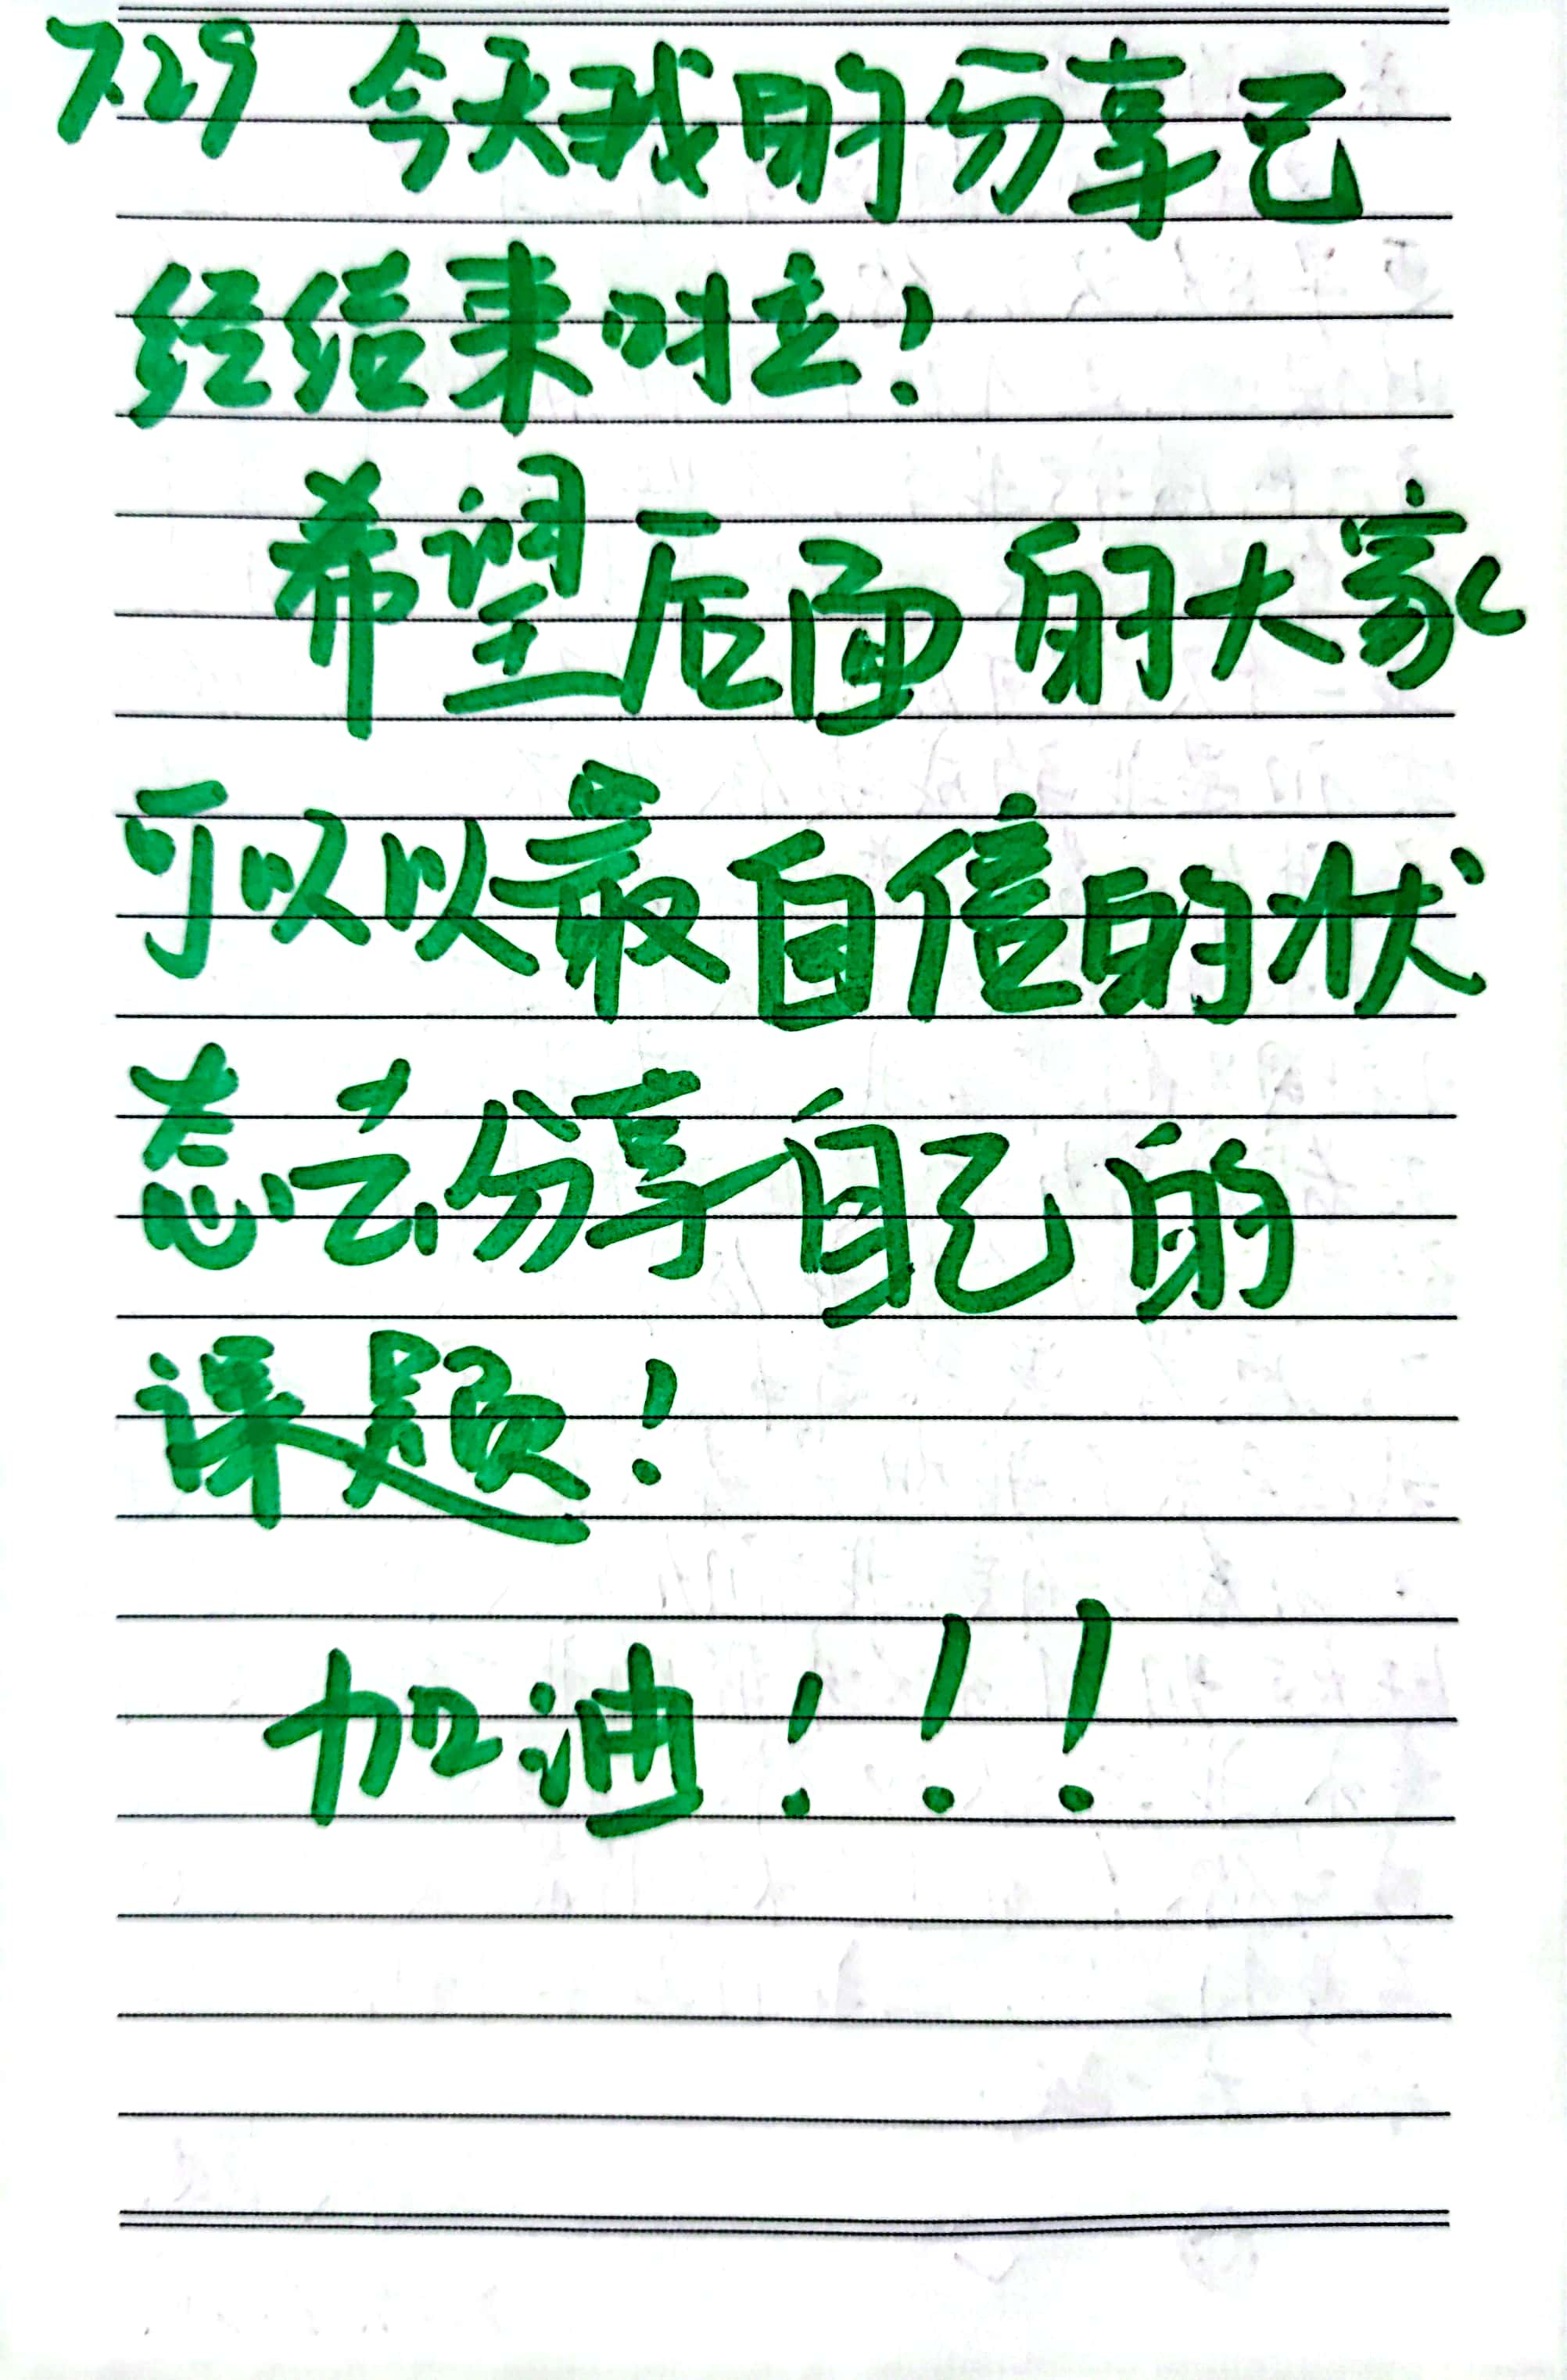 7.29 今天我的分享已
经结束时去!
希望后面的大家
可以以最自信的状
态去分享自己的
课题!
加油!!!